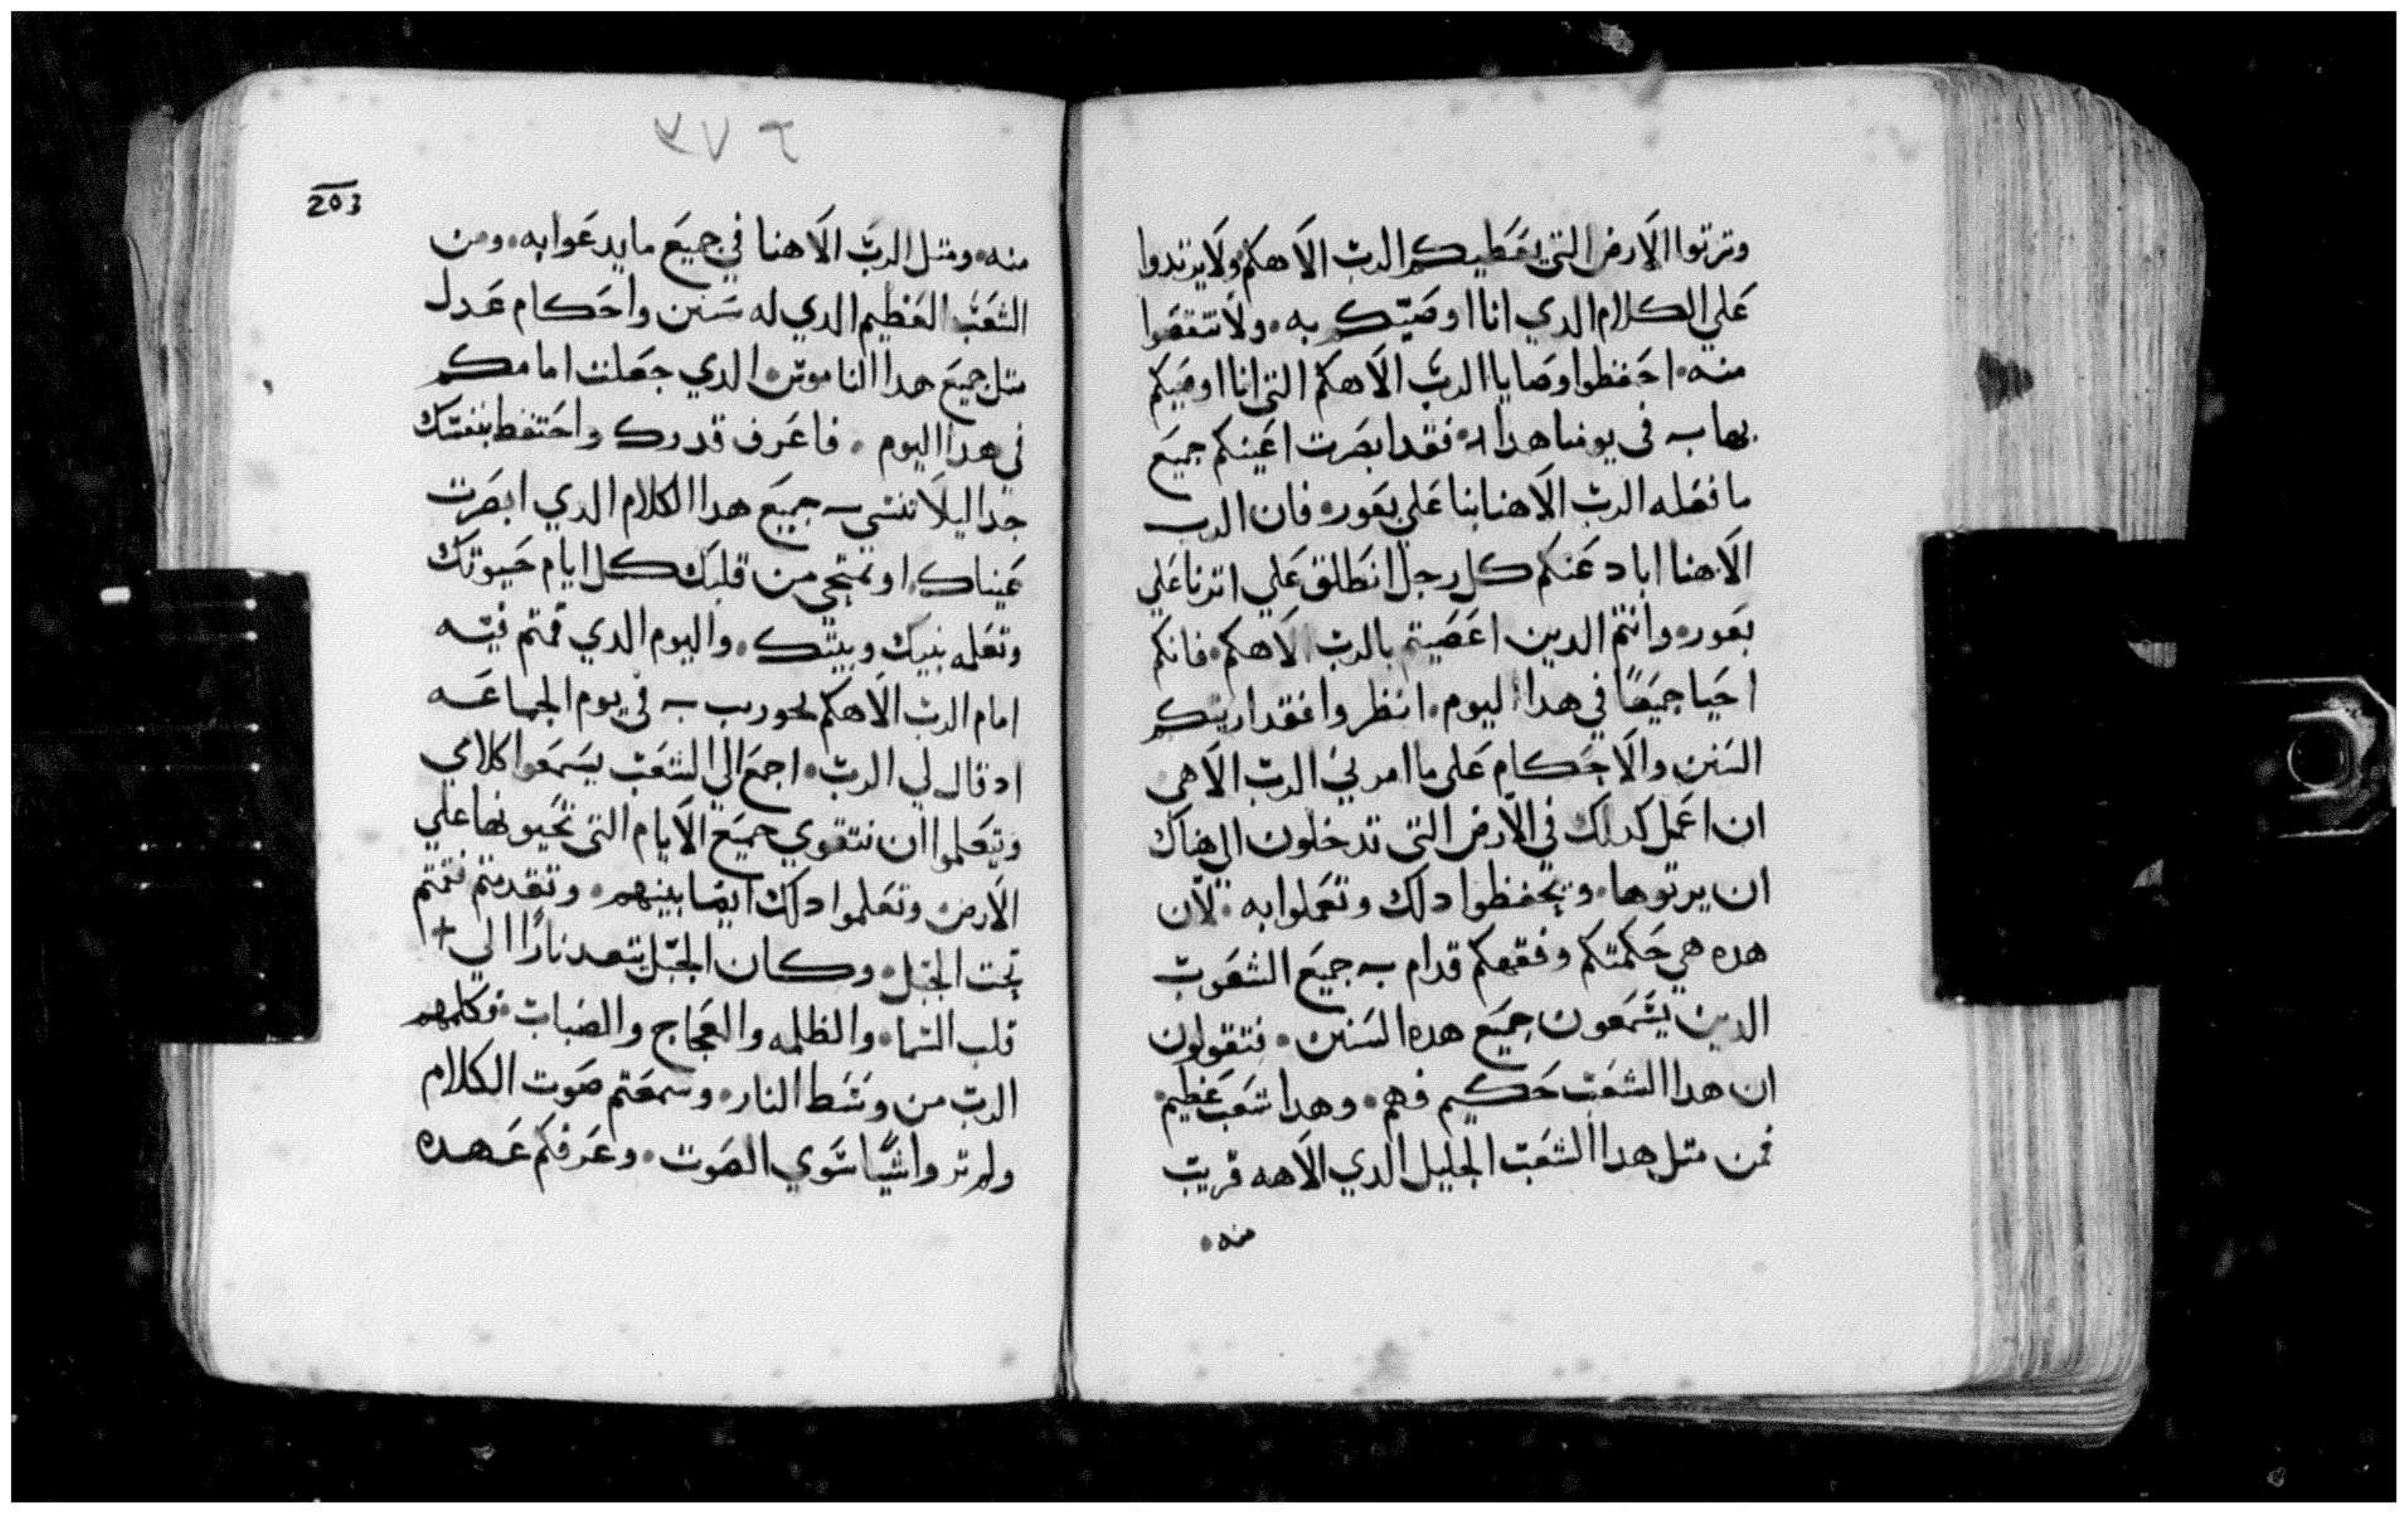 وترتوا الارض التي يعطيكم الرب الاهكم ولا يرتدوا
علي الكلام الدي انا اوصيكم به. ولا تنقصوا
منه. احفظوا وصايا الرب الاهكم التي انا اوصيكم
بها في يومنا هدا. فقد ابصرت اعينكم جميع
ما فعله الرب الاهنا بنا علي بعور. فان الرب
الاهنا اباد عنكم كل رجل انطلق علي اترنا علي
بعور. وانتم الدين اعصيتم بالرب الاهكم. فانكم
احيا جميعًا في هدا اليوم. انظروا فقد اريتكم
السنن والاحكام علي ما امرني الرب الاهي
ان اعمل كدلك في الارض التي تدخلون الي هناك
ان يرتوها. وتحفظوا دلك وتعملوا به. لان
هده هي حكمتكم وفقهكم قدام جميع الشعوب
الدين يسمعون جميع هده السنن. فتقولون
ان هدا الشعب حكيم فهم. وهدا شعب عظيم.
فمن متل هدا الشعب الجليل الدي الاهه قريب
منه.
٣٧٦
203
منه. ومتل الرب الاهنا في جميع ما يدعوا به. ومن
الشعب العظيم الدي له سنن واحكام عدل
متل جميع هدا الناموس. الدي جعلت امامكم
في هدا اليوم. فاعرف قدرك واحتفظ بنفسك
جدا ليلا تنسي جميع هدا الكلام الدي ابصرت
عيناك. او تمتحي من قلبك كل ايام حيوتك
وتعلمه بنيك وبيتك. واليوم الدي قمتم فيه
امام الرب الاهكم بحوريب في يوم الجماعه
اد قال لي الرب. اجمع الي الشعب يسمعوا كلامي
وتعلموا ان تتقوي جميع الايام التي تحيونها علي
الارض وتعلموا دلك ايضا بينهم. وتقدمتم فقمتم
تحت الجبل. وكان الجبل يتعد نارًا الي +
قلب السما. والظلمه والعجاج والضباب. فكلمهم
الرب من وسط النار. وسمعتم صوت الكلام
ولم تروا شيًا سوي الصوت. وعرفكم عهده